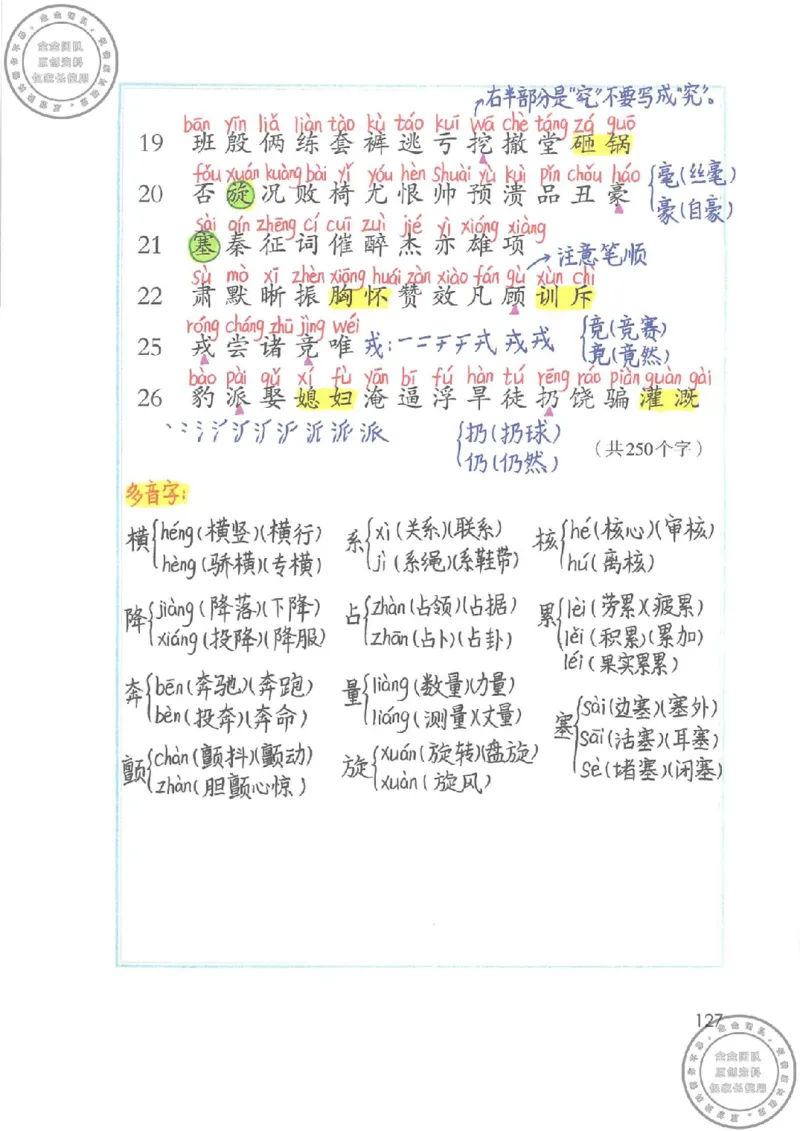 右半部分是"穵"不要写成"究"。
bān yīn liǎ liàn tào kù táo kuī wā chè táng zá guō
19 班殷俩练套裤逃亏挖撤堂砸锅
fǒu xuán kuàng bài yǐ yóu hèn shuài yù kuì pǐn chǒu háo
20 否旋况败椅尤恨帅预溃品丑豪
毫(丝毫)
豪(自豪)
sài qín zhēng cí cuī zuì jié yì xióng xiàng
21 塞秦征词催醉杰亦雄项
注意笔顺
sù mò xī zhèn xiōng huái zàn xiào fán gù xùn chì
22 肃默晰振胸怀赞效凡顾训斥
róng cháng zhū jìng wéi
25 戎尝诸竞唯
戎:一二于于式戎戎
竞(竞赛)
竟(竟然)
bào pài qǔ xí fù yān bī fú hàn tú rēng ráo piàn guàn gài
26 豹派娶媳妇淹逼浮旱徒扔饶骗灌溉
派派派
扔(扔球)
仍(仍然)
(共250个字)
多音字:
横 héng(横竖)(横行)
hèng(骄横)(专横)
系 xì(关系)(联系)
jì(系绳)(系鞋带)
核 hé(核心)(审核)
hú(离核)
降 jiàng(降落)(下降)
xiáng(投降)(降服)
占 zhàn(占领)(占据)
zhān(占卜)(占卦)
累 lèi(劳累)(疲累)
lěi(积累)(累加)
léi(果实累累)
奔 bēn(奔驰)(奔跑)
bèn(投奔)(奔命)
量 liàng(数量)(力量)
liáng(测量)(丈量)
塞 sài(边塞)(塞外)
sāi(活塞)(耳塞)
sè(堵塞)(闭塞)
颤 chàn(颤抖)(颤动)
zhàn(胆颤心惊)
旋 xuán(旋转)(盘旋)
xuàn(旋风)
127